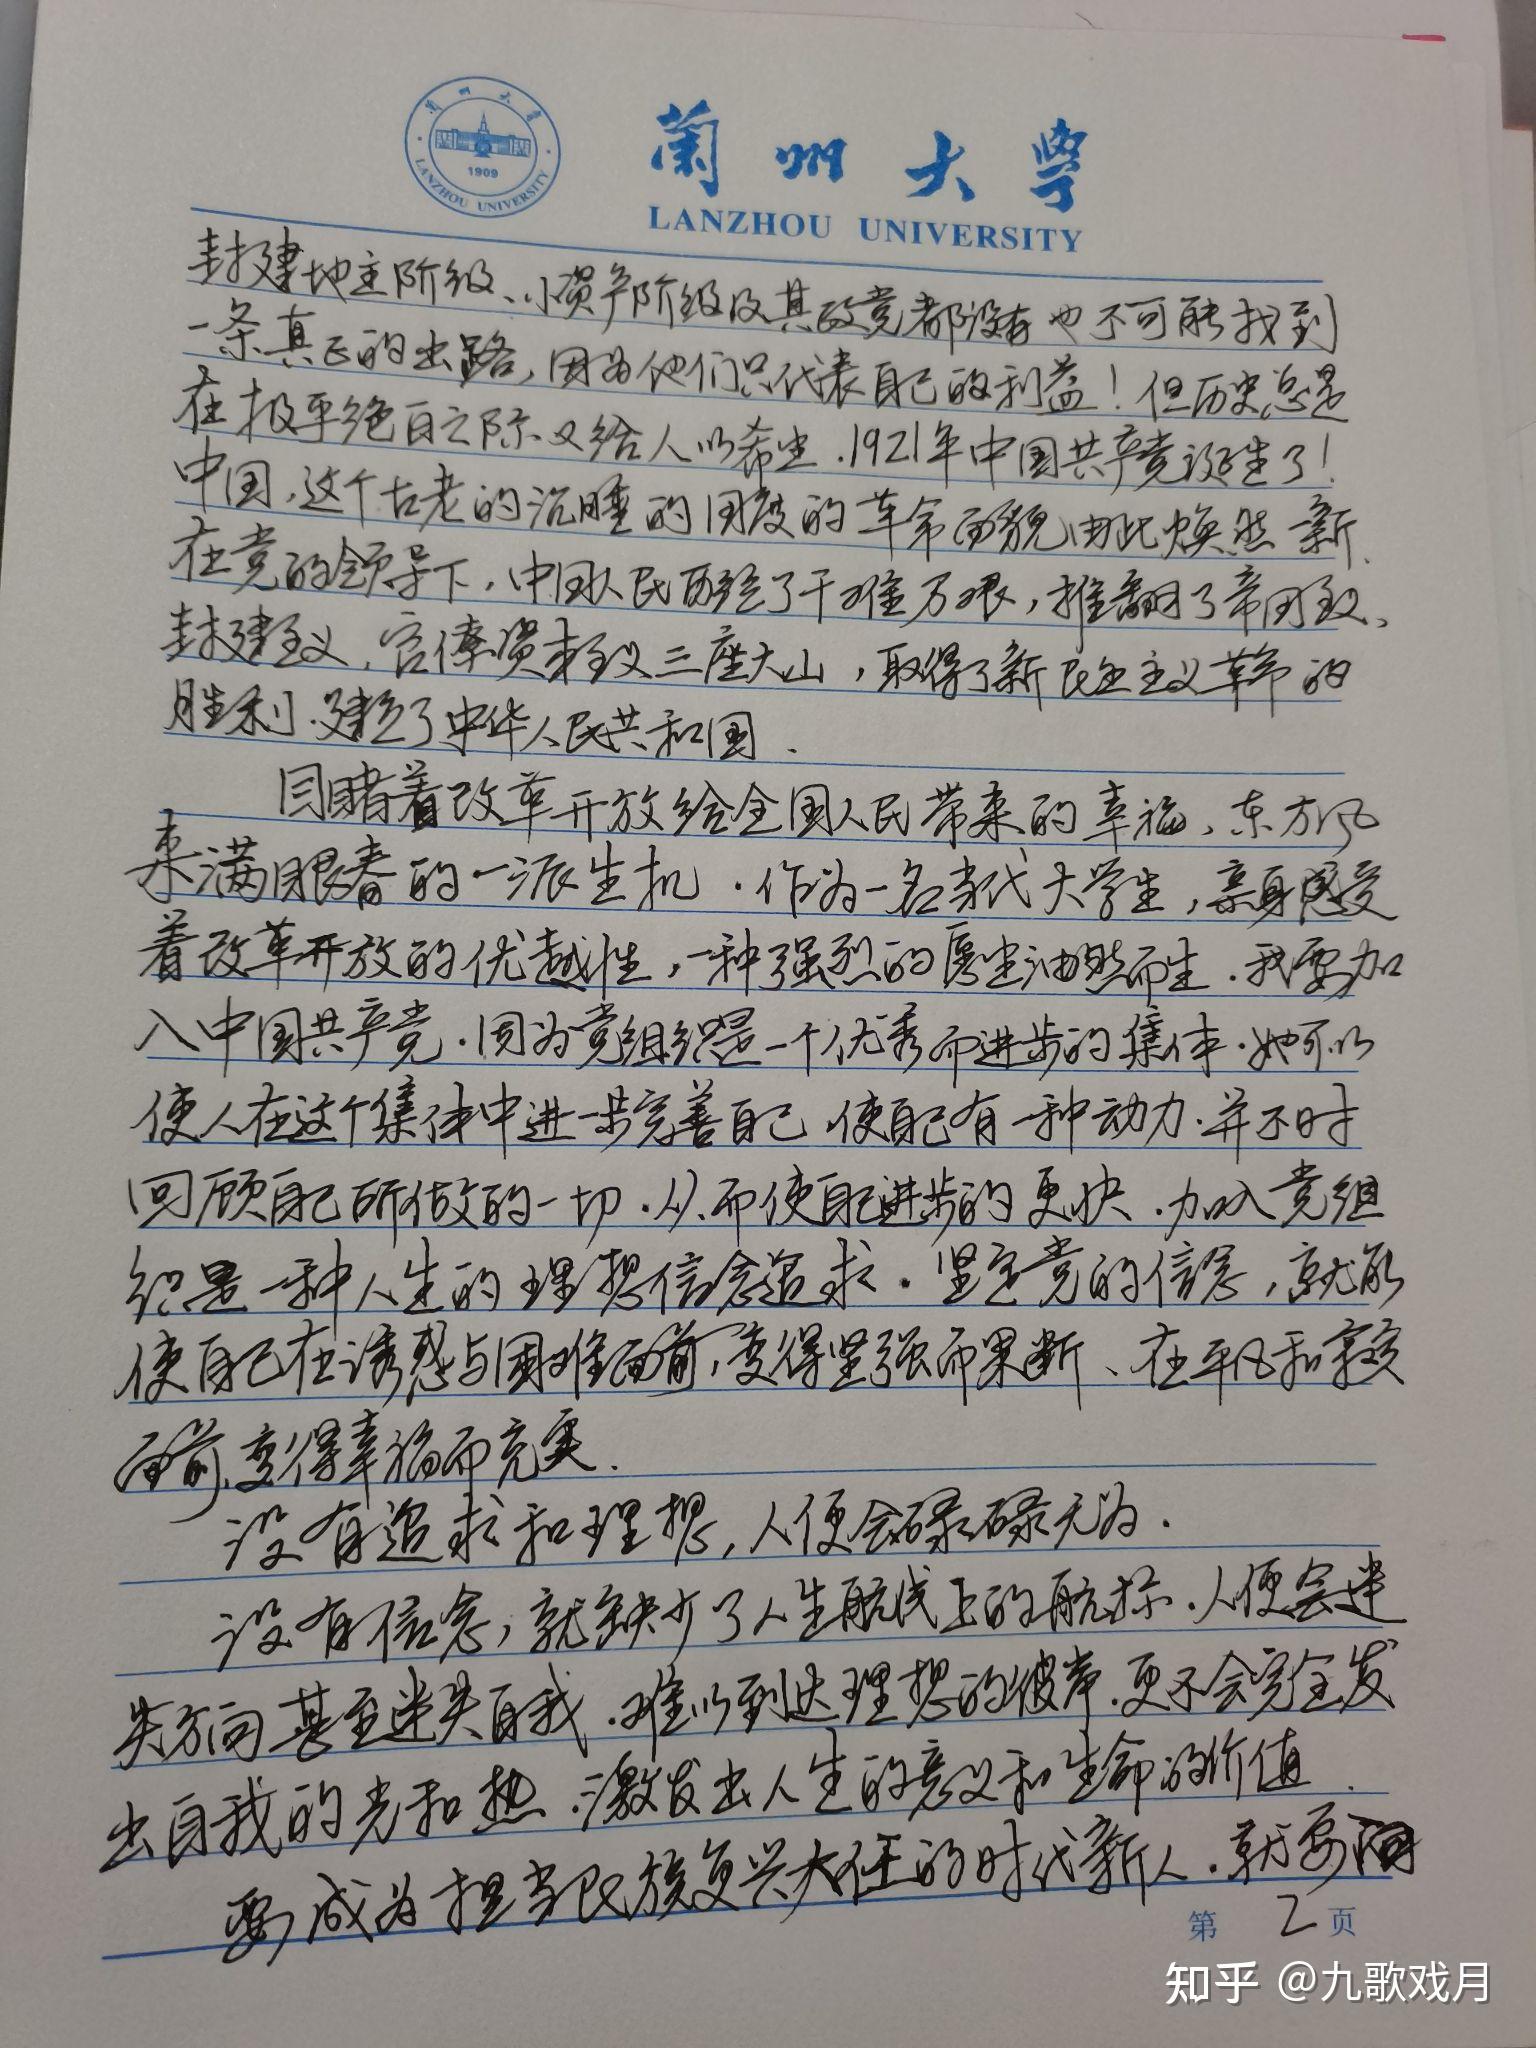 兰州大学
1909
LANZHOU UNIVERSITY
兰州大学
LANZHOU UNIVERSITY
封建地主阶级、小资产阶级及其政党都没有也不可能找到
一条真正的出路，因为他们只代表自己的利益！但历史总是
在极平绝百之际又给人以希望.1921年中国共产党诞生了！
中国，这个古老的沉睡的国度的革命面貌由此焕然一新.
在党的领导下，中国人民历经了千难万艰，推翻了帝国主义、
封建主义，官僚资本主义三座大山，取得了新民主主义革命的
胜利.建立了中华人民共和国.
目睹着改革开放给全国人民带来的幸福，东方风
来满眼春的一派生机.作为一名当代大学生，亲身感受
着改革开放的优越性，一种强烈的愿望油然而生.我要加
入中国共产党.因为党组织是一个优秀而进步的集体.她可以
使人在这个集体中进一步完善自己.使自己有一种动力.并不时
回顾自己所做的一切.从而使自己进步的更快.加入党组
织是一种人生的理想信念追求.坚定党的信念，就能
使自己在诱惑与困难面前，变得坚强而果断、在平凡和寂寞
面前，变得幸福而充实.
没有追求和理想，人便会碌碌无为.
没有信念，就缺少了人生航线上的航标.人便会迷
失方向甚至迷失自我.难以到达理想的彼岸.更不会完全发
出自我的光和热.激发出人生的意义和生命的价值.
要成为担当民族复兴大任的时代新人.就要
第 2 页
知乎 @九歌戏月